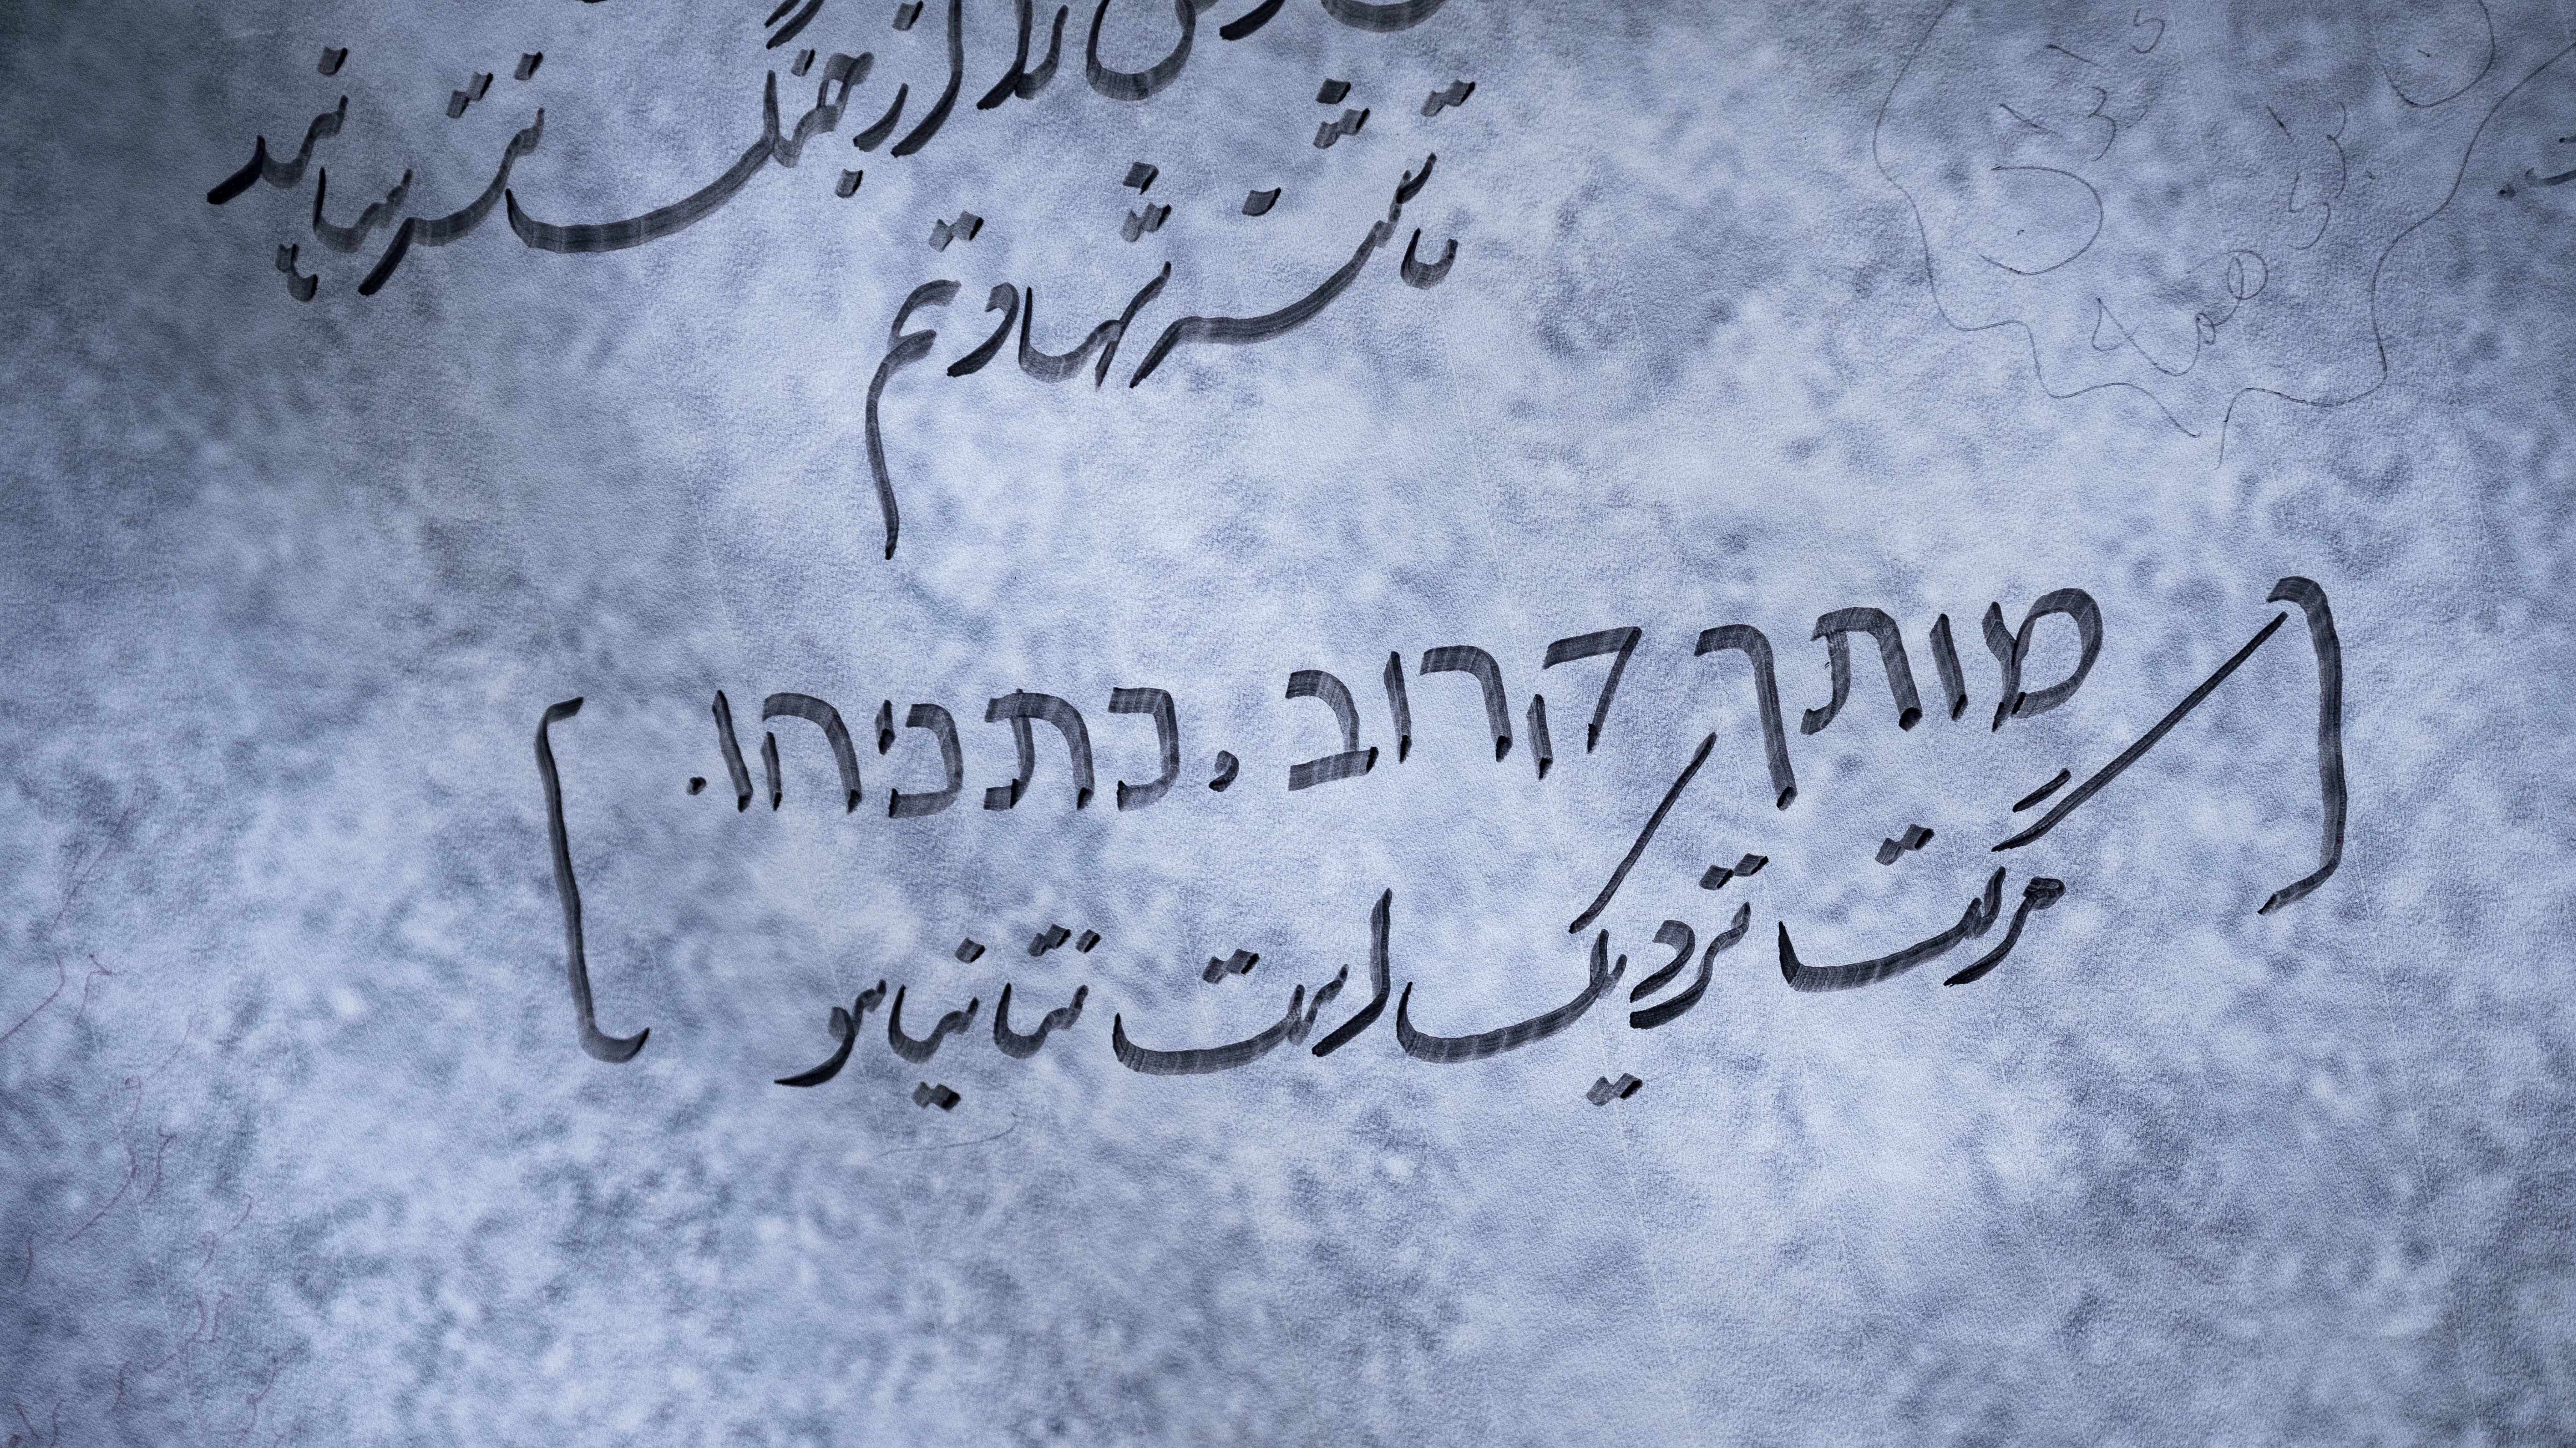 را از جنگ نترسانید
ما تشنه شهادتیم
מותך קרוב, כתניהו.
مرگت نزدیک است نتانیاهو